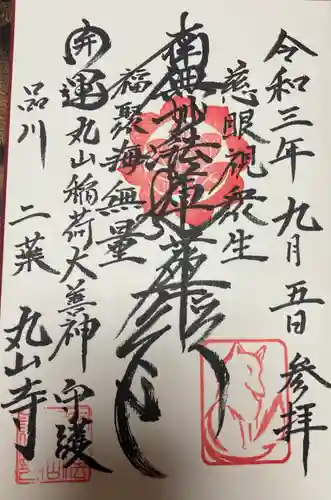 令和三年九月五日 参拝
慈眼視衆生
南無妙法蓮華経
福聚海無量
開運 丸山稲荷大善神 守護
品川 二葉 丸山寺